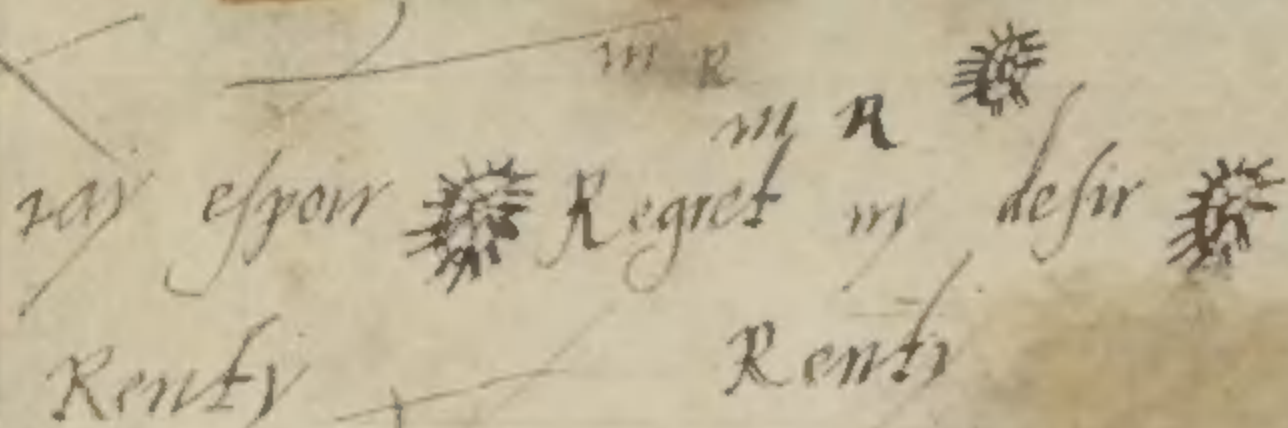 m R
m R
ray espoir Regret ny desir
Renty Renty